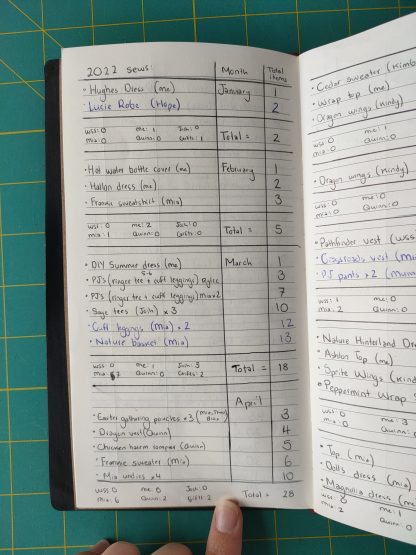 2022 sews: Month Total items
• Hughes Dress (me) January 1
• Lucie Robe (Hope) 2
wss: 0 me: 1 Josh: 0
mia: 0 Quinn: 0 Gifts: 1 Total = 2
• Hot water bottle cover (me) February 1
• Hallon dress (me) 2
• Frannie sweatshirt (mia) 3
wss: 0 me: 2 Josh: 0
mia: 1 Quinn: 0 Gifts: 0 Total = 5
• DIY Summer dress (me) March 1
• PJ's (ringer tee + cuff leggings) 3
• PJ's (ringer tee + cuff leggings) mia x2 7
• Sage tees (Josh) x 3 10
• Cuff leggings (mia) x 2 12
• Nature basket (mia) 13
wss: 0 me: 1 Josh: 3
mia: Quinn: 0 Gifts: 2 Total = 18
April
• Easter gathering pouches x3 3
• Dragon vest (Quinn) 4
• Chicken harem romper (Quinn) 5
• Frannie sweater (mia) 6
• Mia undies x4 10
wss: 0 me: 0 Josh: 0
mia: 6 Quinn: 2 Gifts: 2 Total = 28
• Cedar sweater (Kimba
• Wrap top (me)
• Dragon wings (Kindy
wss: 0 me: 1
mia: 0 Quinn: 0
• Dragon wings (Kindy)
wss: 0 me: 0
mia: 0 Quinn: 0
• Pathfinder vest (wss
• Grassroads vest (mia)
• PJ pants x 2 (mum
wss: 1 me: 0
mia: 2 Quinn: 0
• Nature Hinterland Dr
• Ashton Top (me)
• Sprite Wings (Kind
• Peppermint Wrap S
wss: 0 me: 3
mia: 0 Quinn: 0
• Top (mia)
• Dolls dress (mia)
• Magnolia dress (me)
wss: 0 me:
mia: 2 Quinn: